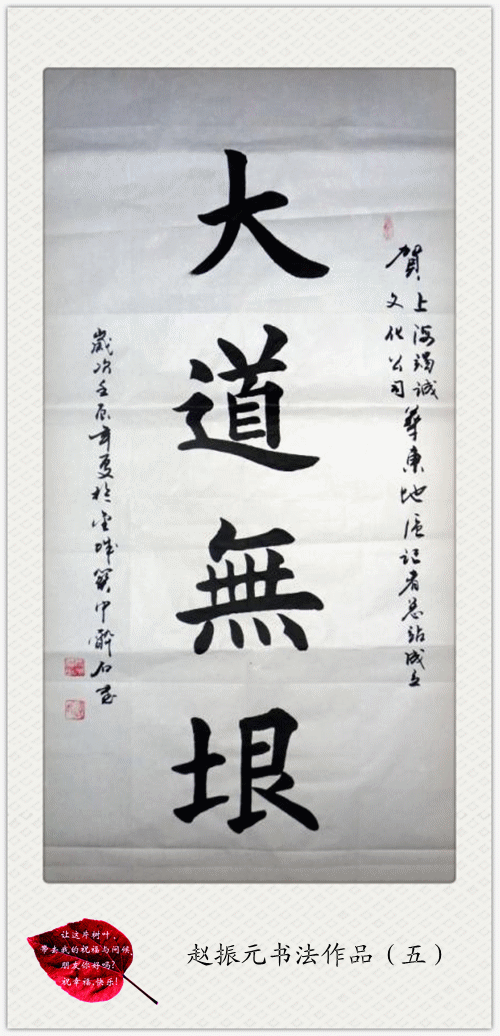 賀
上海诚
文化公司
華东地区记者总站成立
大道無垠
歲次壬辰年夏於金城中醉石
让这片树叶,
带去我的祝福与问候,
朋友你好吗?
祝幸福,快乐!
赵振元书法作品（五）